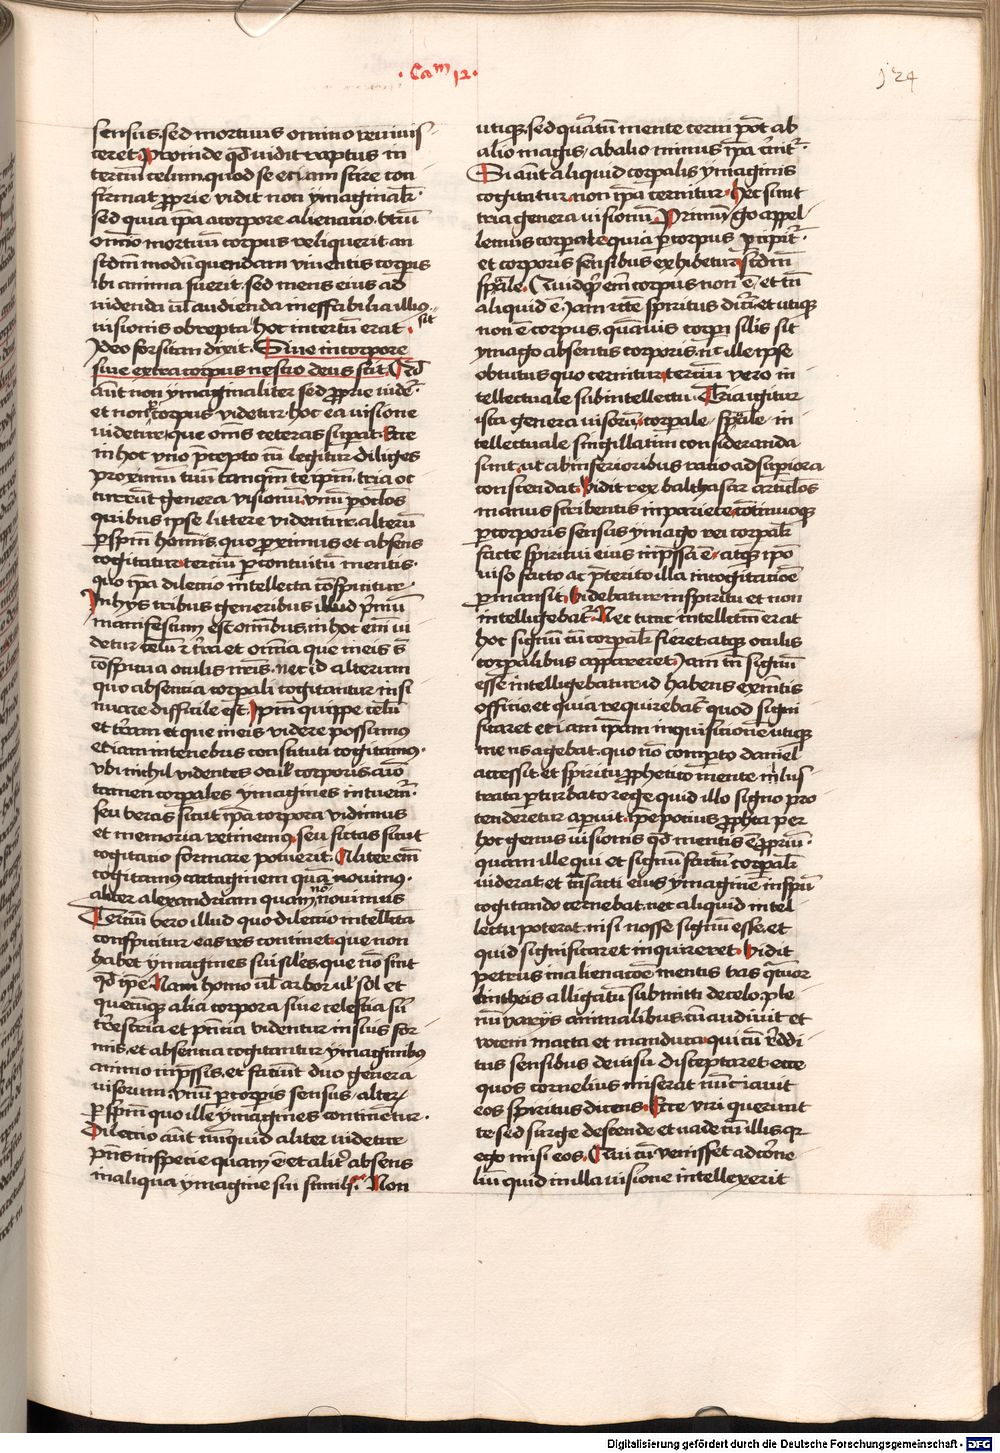 · Cam 12 ·
124
sensus. sed mortuus omnino reuiuis
ceret. Proinde qd vidit raptus in
tercium celum, quod se eciam scire con
firmat proprie vidit non ymaginalr.
sed quia ipa a corpore alienatio. vtrum
omnio mortuum corpus reliquerit an
scdm modum quendam viuentis corporis
ibi anima fuerit, sed mens eius ad
videnda ul audienda ineffabilia illius
uisionis obrepta hoc incertum erat. sit
Ideo forsitan dixit. Siue in corpore
siue extra corpus nescio deus scit. Qd
aut non ymaginaliter sed proprie videt.
et non p corpus videtur. hoc ea visione
videtur, que oms ceteras supat. Ecce
in hoc vno precepto cu legitur diliges
proximum tuum tanqm te ipm. tria oc
currut genera visionum. vnum p oclos
quibus ipse littere videntur. alterum
p spm hominis, quo proximus et absens
cogitatur. tercium p contuitum mentis.
quo ipa dilectio intellecta conspicitur.
In hys tribus generibus illud primum
manifestum est omnibus. in hoc em vi
detur celum et terra et omnia que in eis st
conspicua oculis nris. nec id alterum
quo absentia corpali cogitantur insi
nuare difficile est. Ipm quippe celum
et terram et que in eis videre possumus
etiam in tenebris constituti cogitamus.
vbi nichil videntes oculis corporis aio
tamen corpales ymagines intuemur
seu veras sicut ipa corpora vidimus
et memoria retinemus, seu fictas sicut
cogitatio formare potuerit. Aliter em
cogitamus cartaginem quam novimus.
aliter alexandriam quam no nouimus
Tercium vero illud quo dilectio intellecta
conspicitur. eas res continet. que non
habet ymagines sui siles. que no sint
qd ipe. Nam homo ul arbor ul sol et
quecunq alia corpora siue celestia siue
terrestria et pntia videntur in suis for
mis, et absentia cogitantur ymaginibus
animo impssis, et faciunt duo genera
visorum. vnum p corporis sensus, alterum
p spm quo ille ymagines continentur.
Dilectio aut nunquid aliter videtur
pns in specie quam est et aliter absens
in aliqua ymagine sui simili. Non
utiqz, sed quantum mente cerni potest ab
alio magis, ab alio minus ipa cernitur.
Si aut aliquid corpalis ymaginis
cogitatur, non ipa cernitur. Hec sunt
tria genera uisionum. Primum ergo appel
lemus corporale, quia per corpus percipitur.
et corporis sensibus exhibetur. scdm
spuale. Quidquid em corpus non est, et tamen
aliquid est, iam recte spiritus dicitur. et utique
non est corpus, quamuis corpori similis sit
ymago absentis corporis. nec ille ipse
obtutus quo cernitur. tercium vero in
tellectuale sub intellectu. Tria igitur
ista genera uisorum, corporale, spuale, in
tellectuale singillatim consideranda
sunt, ut ab inferioribus ratio ad superiora
conscendat. Vidit rex balthasar articulos
manus scribentis in pariete. continuoqz
p corporis sensus ymago rei corpalr
facte spiritui eius impssa est, atqz ipo
viso facto ac preterito illa in cogitatione
permansit. Videbatur in spiritu et non
intelligebatur. Nec tunc intellectum erat
hoc signum cum corpalr fieret, atqz oculis
corpalibus appareret. Iam tamen signum
esse intelligebatur, id habens ex mentis
officio. et quia requirebatur quod signi
ficaret etiam ipam inquisitionem utique
mens agebat. quo no comperto daniel
accessit, et spiritu prophetico mente illus
trata perturbato rege quid illo signo pro
tenderetur aperuit. ipe potius propheta per
hoc genus uisionis qd mentis est proprium.
quam ille qui et signum factum corpalr
viderat. et transacti eius ymaginem in spu
cogitando cernebat. nec aliquid intel
lectu poterat. nisi nosse signum esse, et
quid significaret inquireret. Vidit
petrus in alienacoe mentis vas quatuor
lintheis alligatum submitti de celo. ple
num varys animalibus. cu audiuit et
vocem macta et manduca. qui cu reddi
tus sensibus de uisu disceptaret. ecce
quos cornelius miserat nunciauit
eos spiritus dicens. Ecce viri querunt
te sed surge descende et vade cum illis qr
ego misi eos. Qui cu venisset ad corne
lium quid in illa visione intellexerit
Digitalisierung gefördert durch die Deutsche Forschungsgemeinschaft - DFG